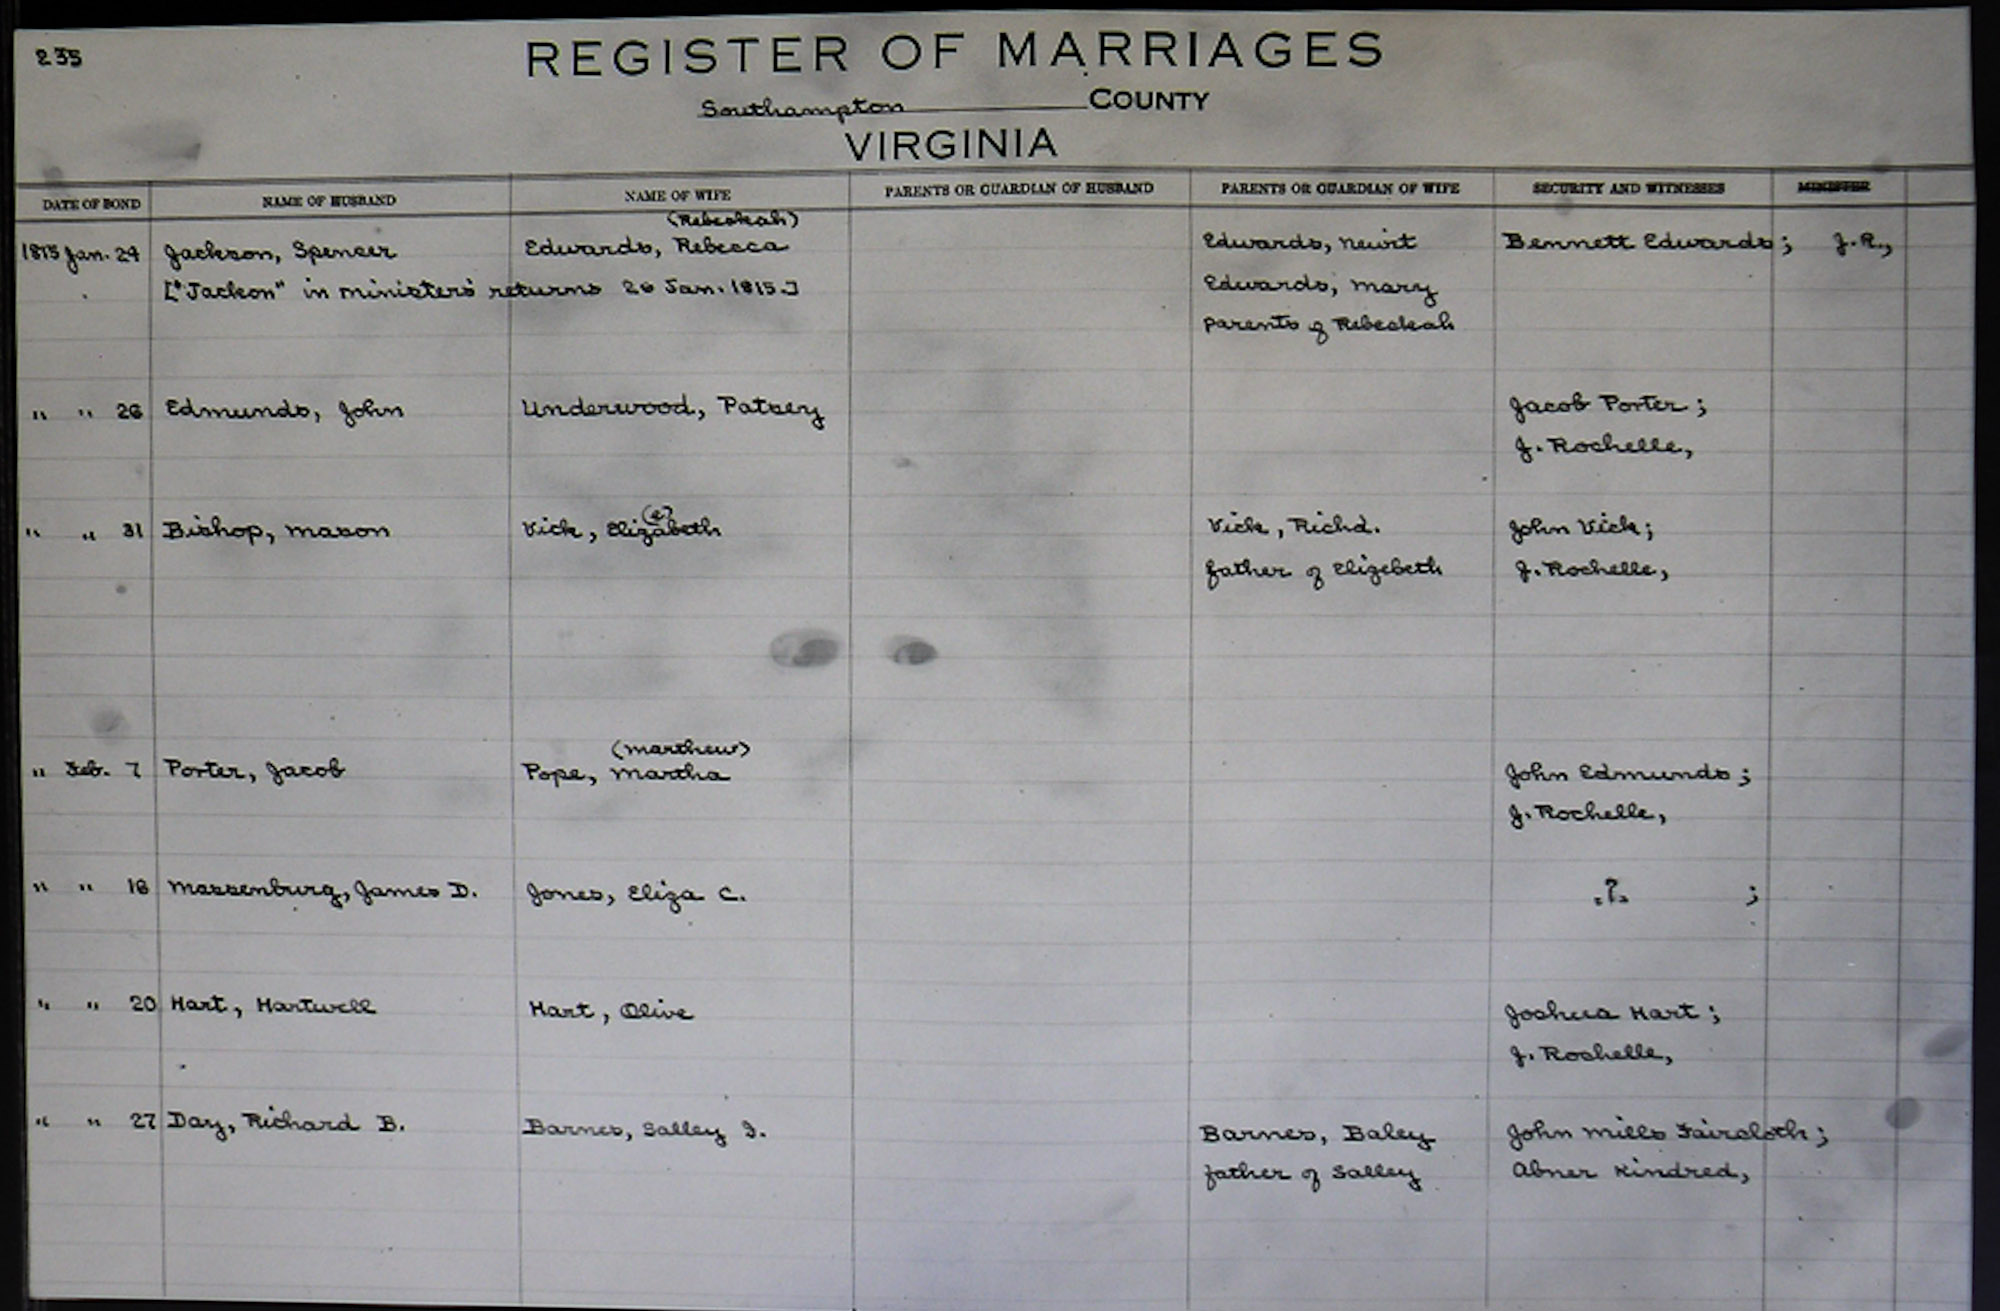 235
REGISTER OF MARRIAGES
Southampton COUNTY
VIRGINIA
DATE OF BOND NAME OF HUSBAND NAME OF WIFE PARENTS OR GUARDIAN OF HUSBAND PARENTS OR GUARDIAN OF WIFE SECURITY AND WITNESSES MINISTER
(Rebeckah)
1815 Jan. 24 Jackson, Spencer Edwards, Rebecca Edwards, Newit Bennett Edwards; J.R.,
["Jackson" in ministers' returns 26 Jan. 1815.] Edwards, Mary
parents of Rebeckah
" " 26 Edmunds, John Underwood, Patsey Jacob Porter;
J. Rochelle,
(e)
" " 31 Bishop, Mason Vick, Elizabeth Vick, Richd. John Vick;
father of Elizebeth J. Rochelle,
(Marthew)
" Feb. 7 Porter, Jacob Pope, Martha John Edmunds;
J. Rochelle,
" " 18 Massenburg, James D. Jones, Eliza C. .?. ;
" " 20 Hart, Hartwell Hart, Olive Joshua Hart;
J. Rochelle,
" " 27 Day, Richard B. Barnes, Salley J. Barnes, Baley John Mills Faircloth;
father of Salley Abner Kindred,